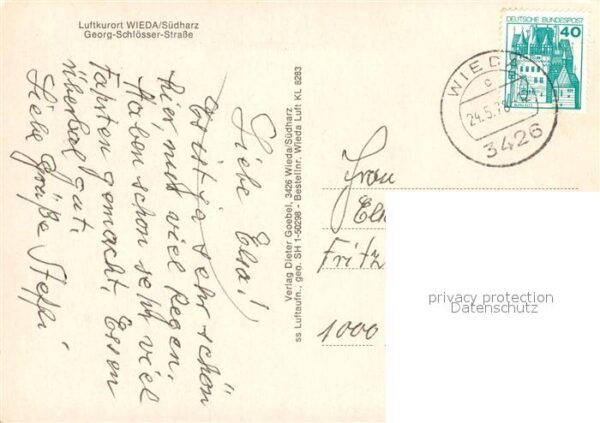 Luftkurort WIEDA/Südharz
Georg-Schlösser-Straße
Liebe Elsa!
Es ist ja sehr schön
hier, nur viel Regen.
Haben schon sehr viel
Fahrten gemacht. Essen
überall gut.
Liebe Grüße Steffi
Verlag Dieter Goebel, 3426 Wieda/Südharz
ss Luftaufn., geg. SH 1-50298 - Bestellnr. Wieda Luft KL 8283
DEUTSCHE BUNDESPOST
40
WIEDA
c
24.5.78
3426
Frau
Fritz
1000
privacy protection
Datenschutz